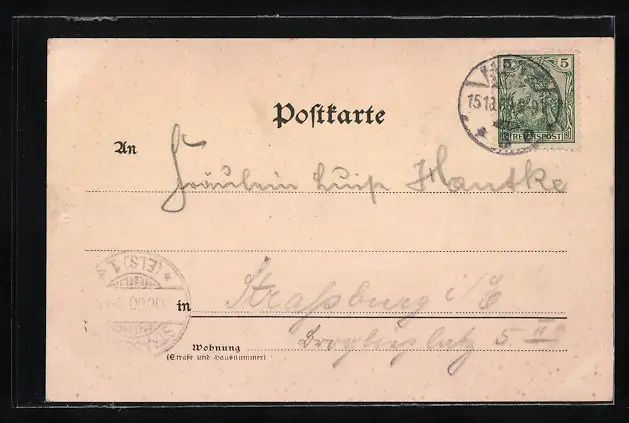 5 5
REICHSPOST
Postkarte
An
Fräulein Luise Hantke
* (ELS) 1
in Straßburg i/E
Wohnung
(Straße und Hausnummer)
Broglieplatz 5 II